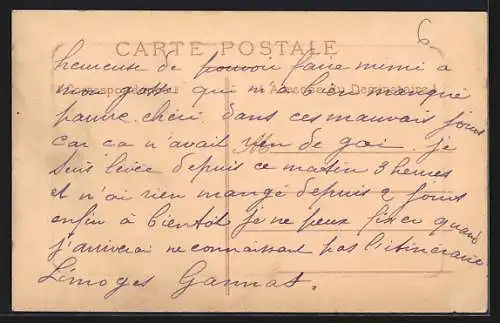 6
CARTE POSTALE
heureuse de pouvoir faire mimi à
mon gosse qui m'a bien manqué
pauvre chéri dans ces mauvais jours
car ca n'avait rien de gai. je
suis levée depuis ce matin 3 heures
et n'ai rien mangé depuis 2 jours
enfin à bientôt je ne peux fixer quand
j'arriverai ne connaissant pas l'itinéraire
Limoges Gannat.